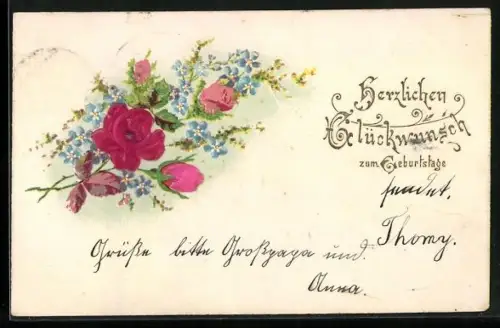 Herzlichen
Glückwunsch
zum Geburtstage
sendet.
Thomy.
Grüße bitte Großpapa und
Anna.